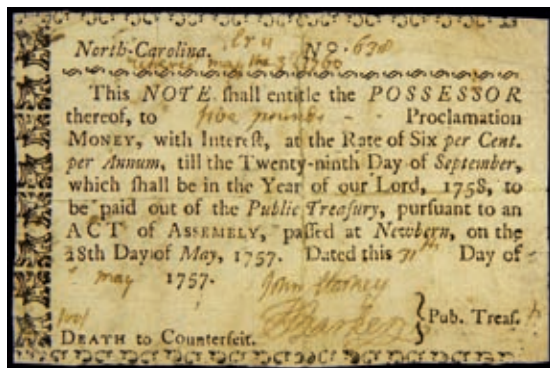 North-Carolina. Nº. 638
may the 3 1760
This NOTE ſhall entitle the POSSESSOR
thereof, to five pounds - - Proclamation
MONEY, with Intereſt, at the Rate of Six per Cent.
per Annum, till the Twenty-ninth Day of September,
which ſhall be in the Year of our Lord, 1758, to
be paid out of the Public Treaſury, purſuant to an
ACT of ASSEMBLY, paſſed at Newbern, on the
28th Day of May, 1757. Dated this 31th Day of
may 1757. John Starkey
Pub. Treaſ.
DEATH to Counterfeit.